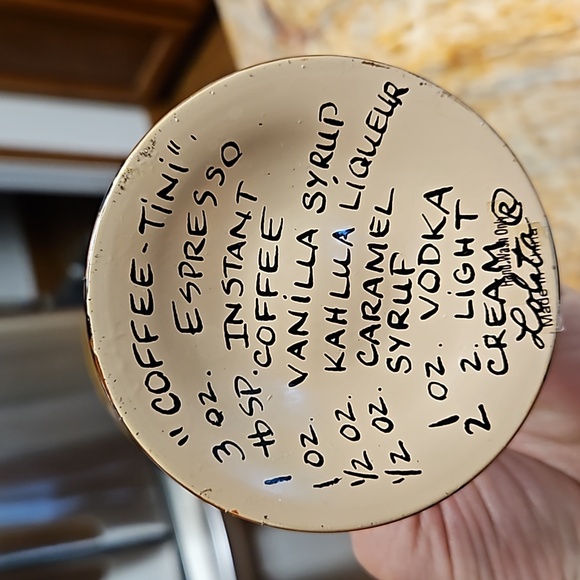 "COFFEE-TINI"
3 OZ. ESPRESSO
1 tbSP. INSTANT
COFFEE
1 OZ. VANILLA SYRUP
1/2 OZ. KAHLUA LIQUEUR
1/2 OZ. CARAMEL
SYRUP
1 OZ. VODKA
2 Z. LIGHT
CREAM
Hand Wash Only
Lolita ®
Made in